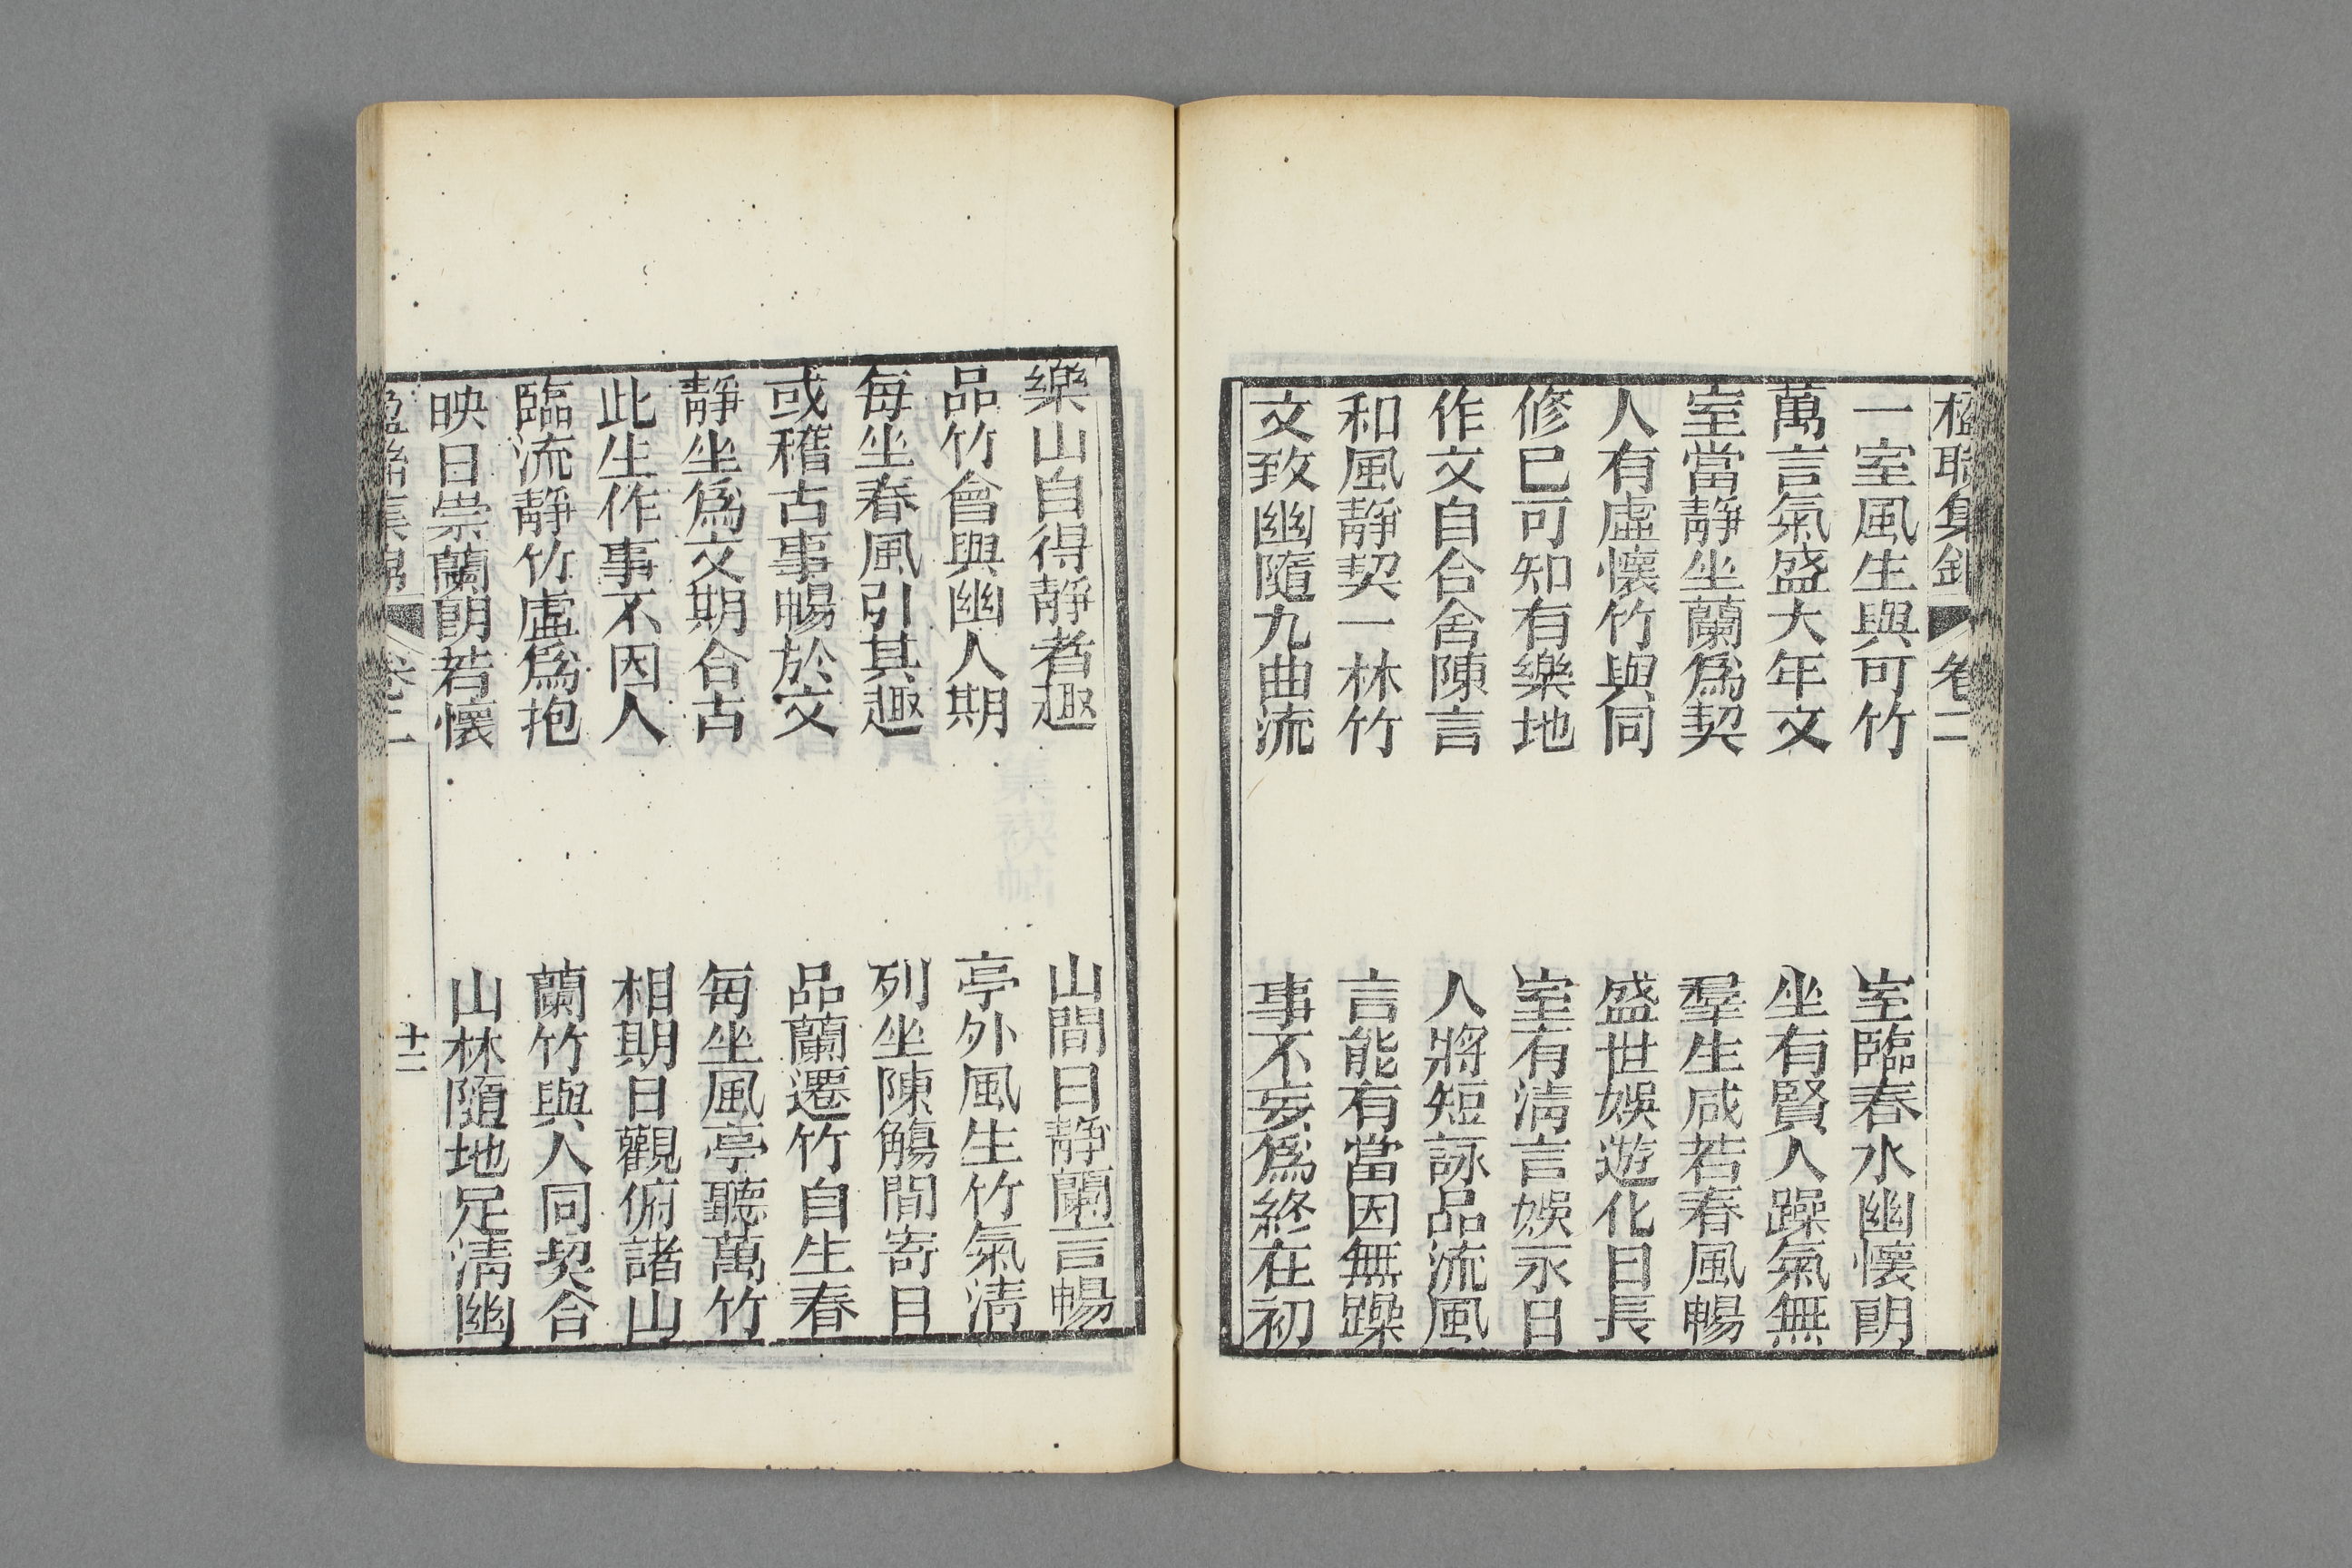 楹聯集錦 卷二
一室風生與可竹 室臨春水幽懷朗
萬言氣盛大年文 坐有賢人躁氣無
室當靜坐蘭爲契 羣生咸若春風暢
人有虛懷竹與同 盛世娛遊化日長
修已可知有樂地 室有清言娛永日
作文自合舍陳言 人將短詠品流風
和風靜契一林竹 言能有當因無躁
文致幽隨九曲流 事不妄爲終在初
樂山自得靜者趣 山間日靜蘭言暢
品竹會與幽人期 亭外風生竹氣清
每坐春風引其趣 列坐陳觴間寄目
或稽古事暢於文 品蘭遷竹自生春
靜坐爲文期合古 每坐風亭聽萬竹
此生作事不因人 相期日觀俯諸山
臨流靜竹虛爲抱 蘭竹與人同契合
映日崇蘭朗若懷 山林隨地足清幽
楹聯集錦 卷二 十二